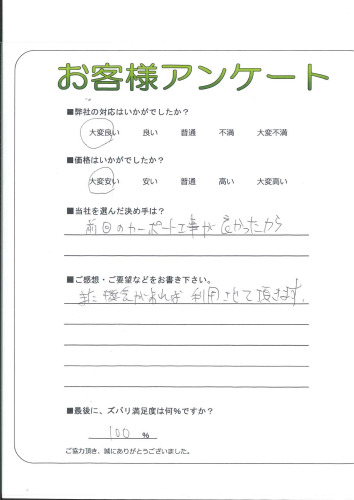 お客様アンケート
■弊社の対応はいかがでしたか？
大変良い 良い 普通 不満 大変不満
■価格はいかがでしたか？
大変安い 安い 普通 高い 大変高い
■当社を選んだ決め手は？
前回のカーポート工事が良かったから
■ご感想・ご要望などをお書き下さい。
また機会があれば利用させて頂きます。
■最後に、ズバリ満足度は何％ですか？
100 ％
ご協力頂き、誠にありがとうございました。